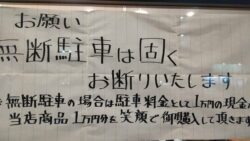 お願い
無断駐車は固く
お断りいたします
※無断駐車の場合は駐車料金として1万円の現金か
当店商品1万円分を笑顔で御購入して頂きます